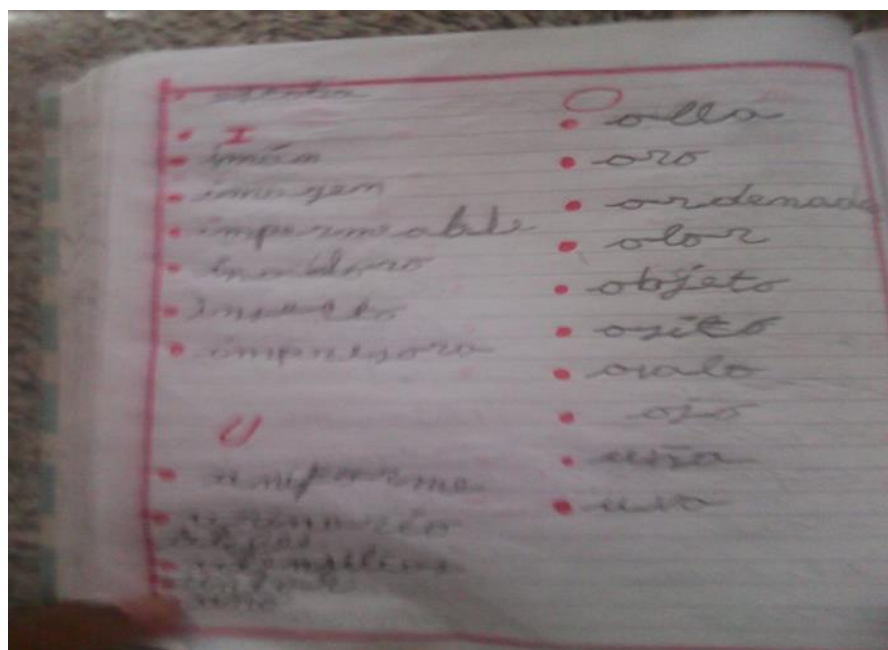 I
imán
imagen
impermeable
inodoro
insecto
impresora
U
uniforme
utensilios
uno
O
olla
oro
ordenado
olor
objeto
osito
ovalo
ojo
uña
uva